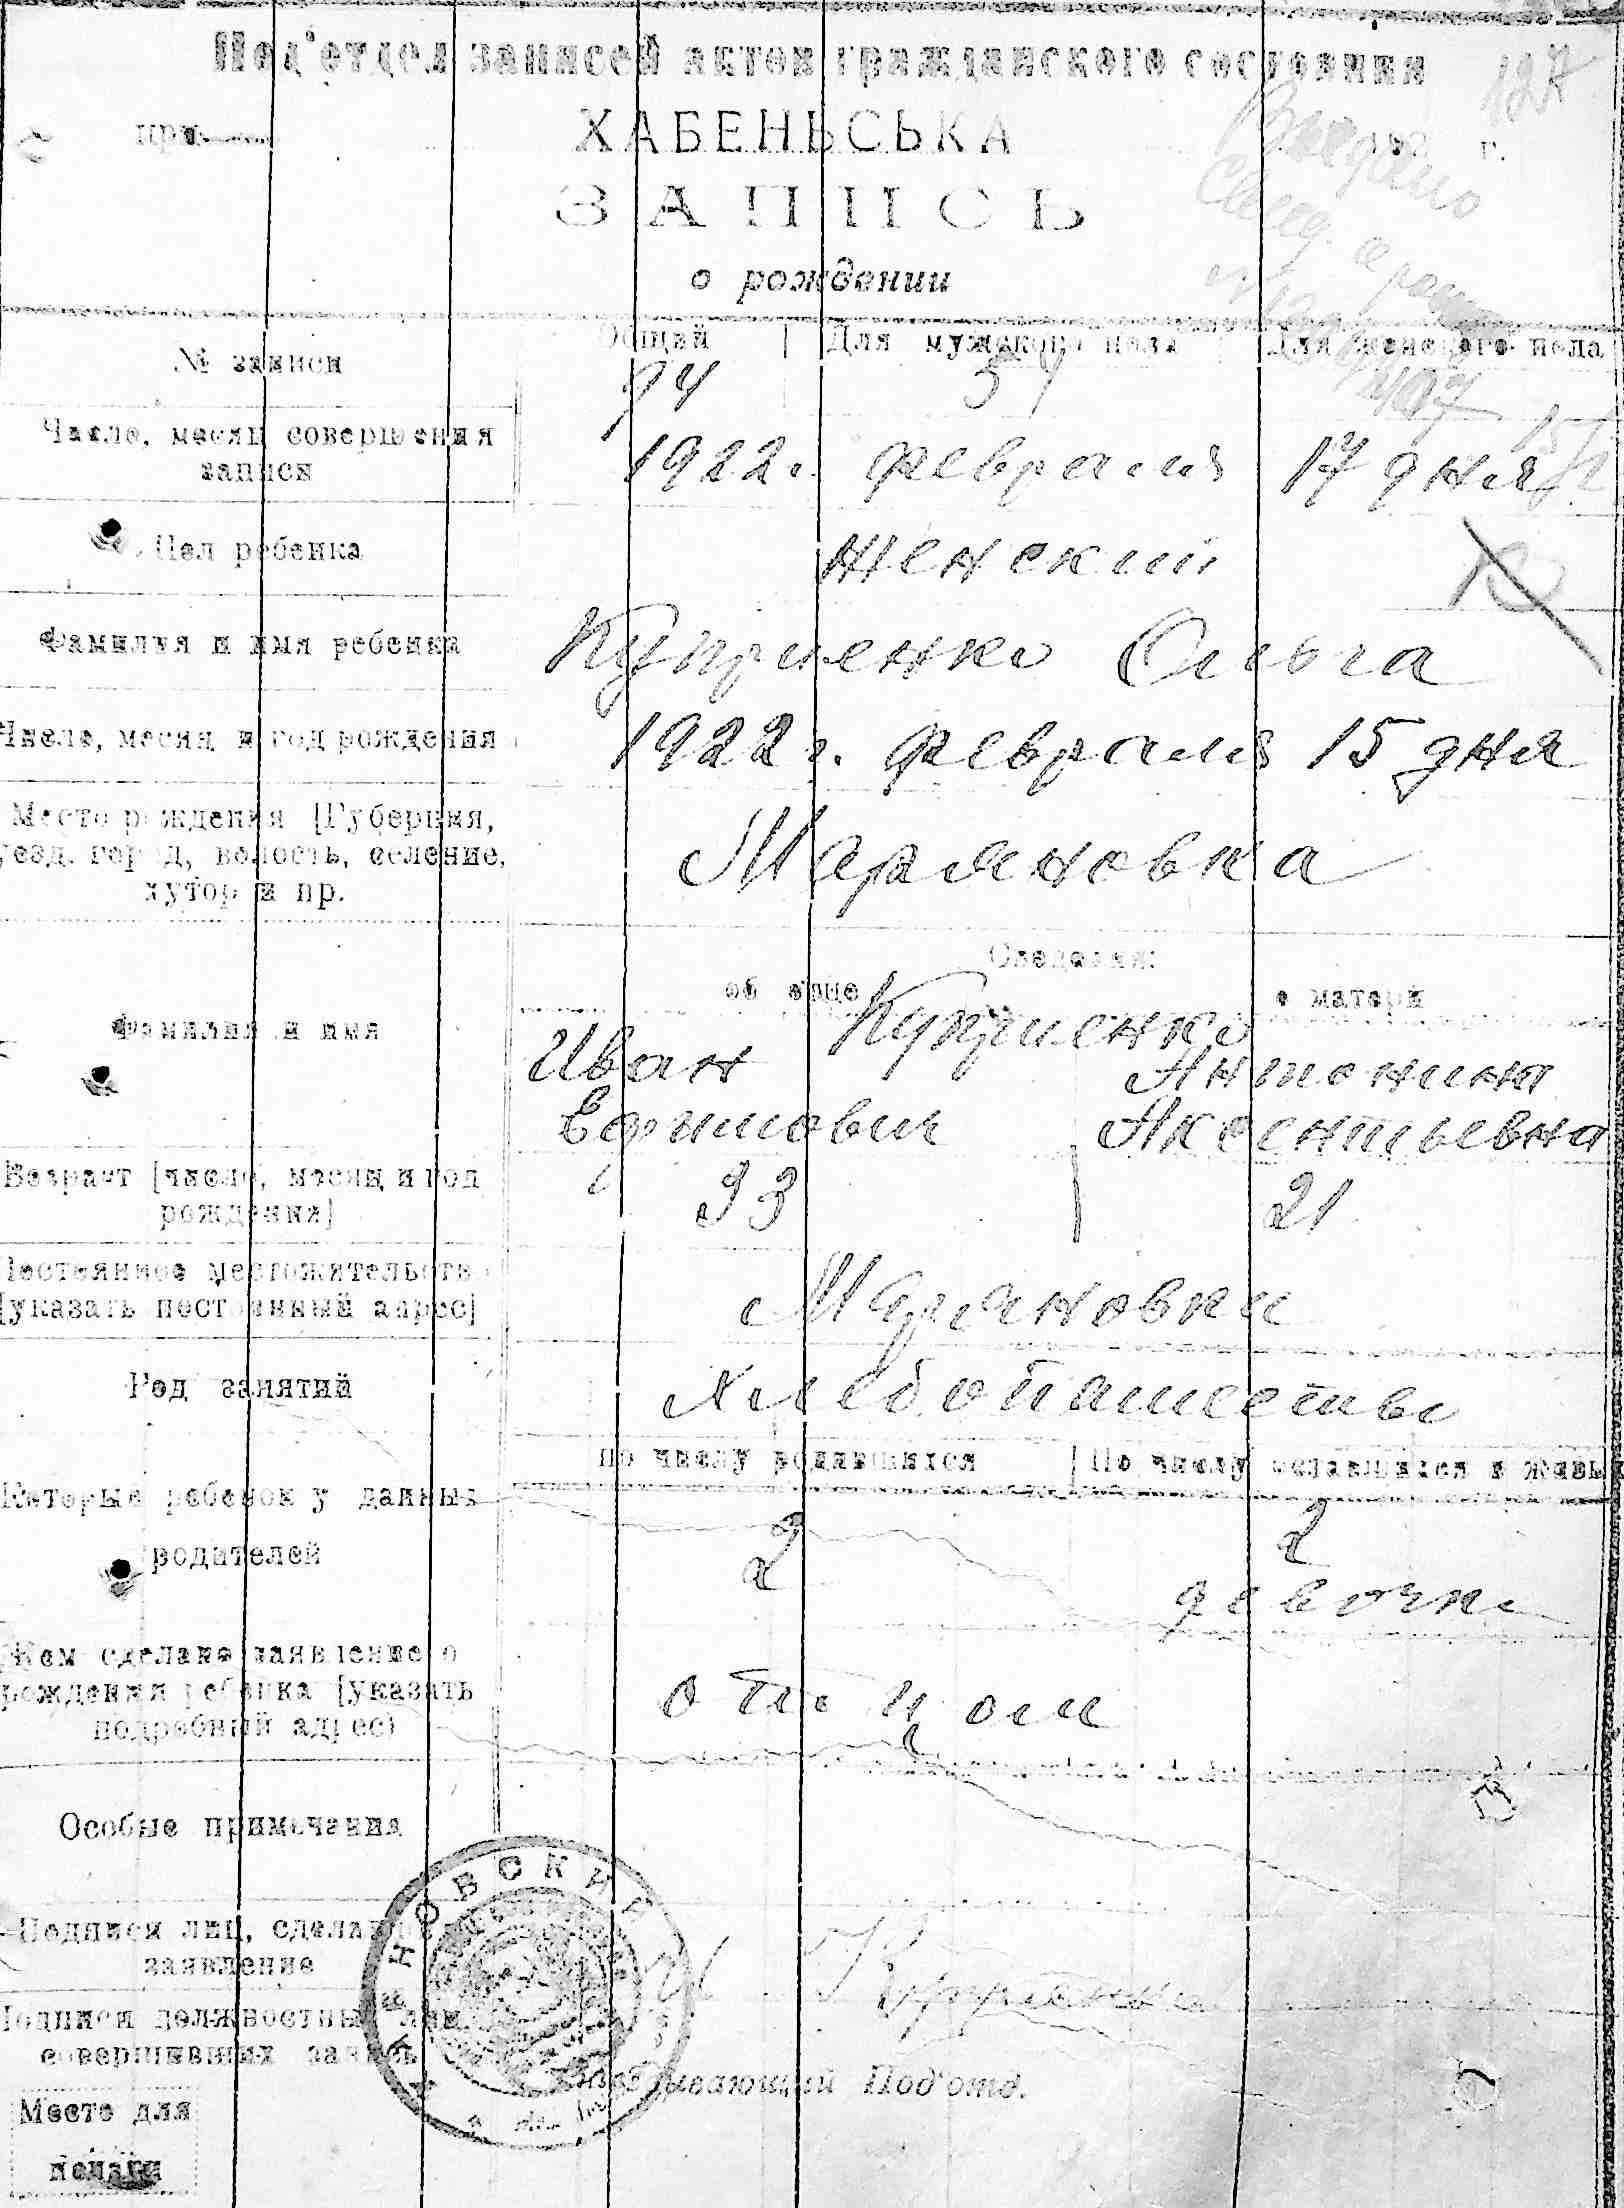 Под'отдел записей актов гражданского состояния
127
при
ХАБЕНЬСЬКА
192 г.
Выдано
Свид. о рожд
ЗАПИСЬ
о рождении
№ записи
Общий Для мужского пола Для женского пола
94 51
Число, месяц совершения
записи
1922 г. февраля 17 дня
Пол ребенка
женский
Фамилия и имя ребенка
Куприенко Ольга
Число, месяц и год рождения
1922 г. февраля 15 дня
Место рождения [Губерния,
уезд, город, волость, селение,
хутор и пр.
Марьяновка
Сведения:
об отце о матери
Фамилия и имя
Куприенко
Иван Антонина
Ефимович Аксентьевна
Возраст [число, месяц и год
рождения]
33 21
Постоянное местожительство
[указать постоянный адрес]
Марьяновка
Род занятий
хлебопашество
По числу родившихся По числу оставшихся в живых
Который ребенок у данных
родителей
2 2
девочка
Кем сделано заявление о
рождении ребенка [указать
подробный адрес)
отцом
Особые примечания
Подписи лиц, сделавших
заявление
И Куприенко
Подписи должностных лиц
совершивших запись
Заведывающий Под'отд.
Место для
печати